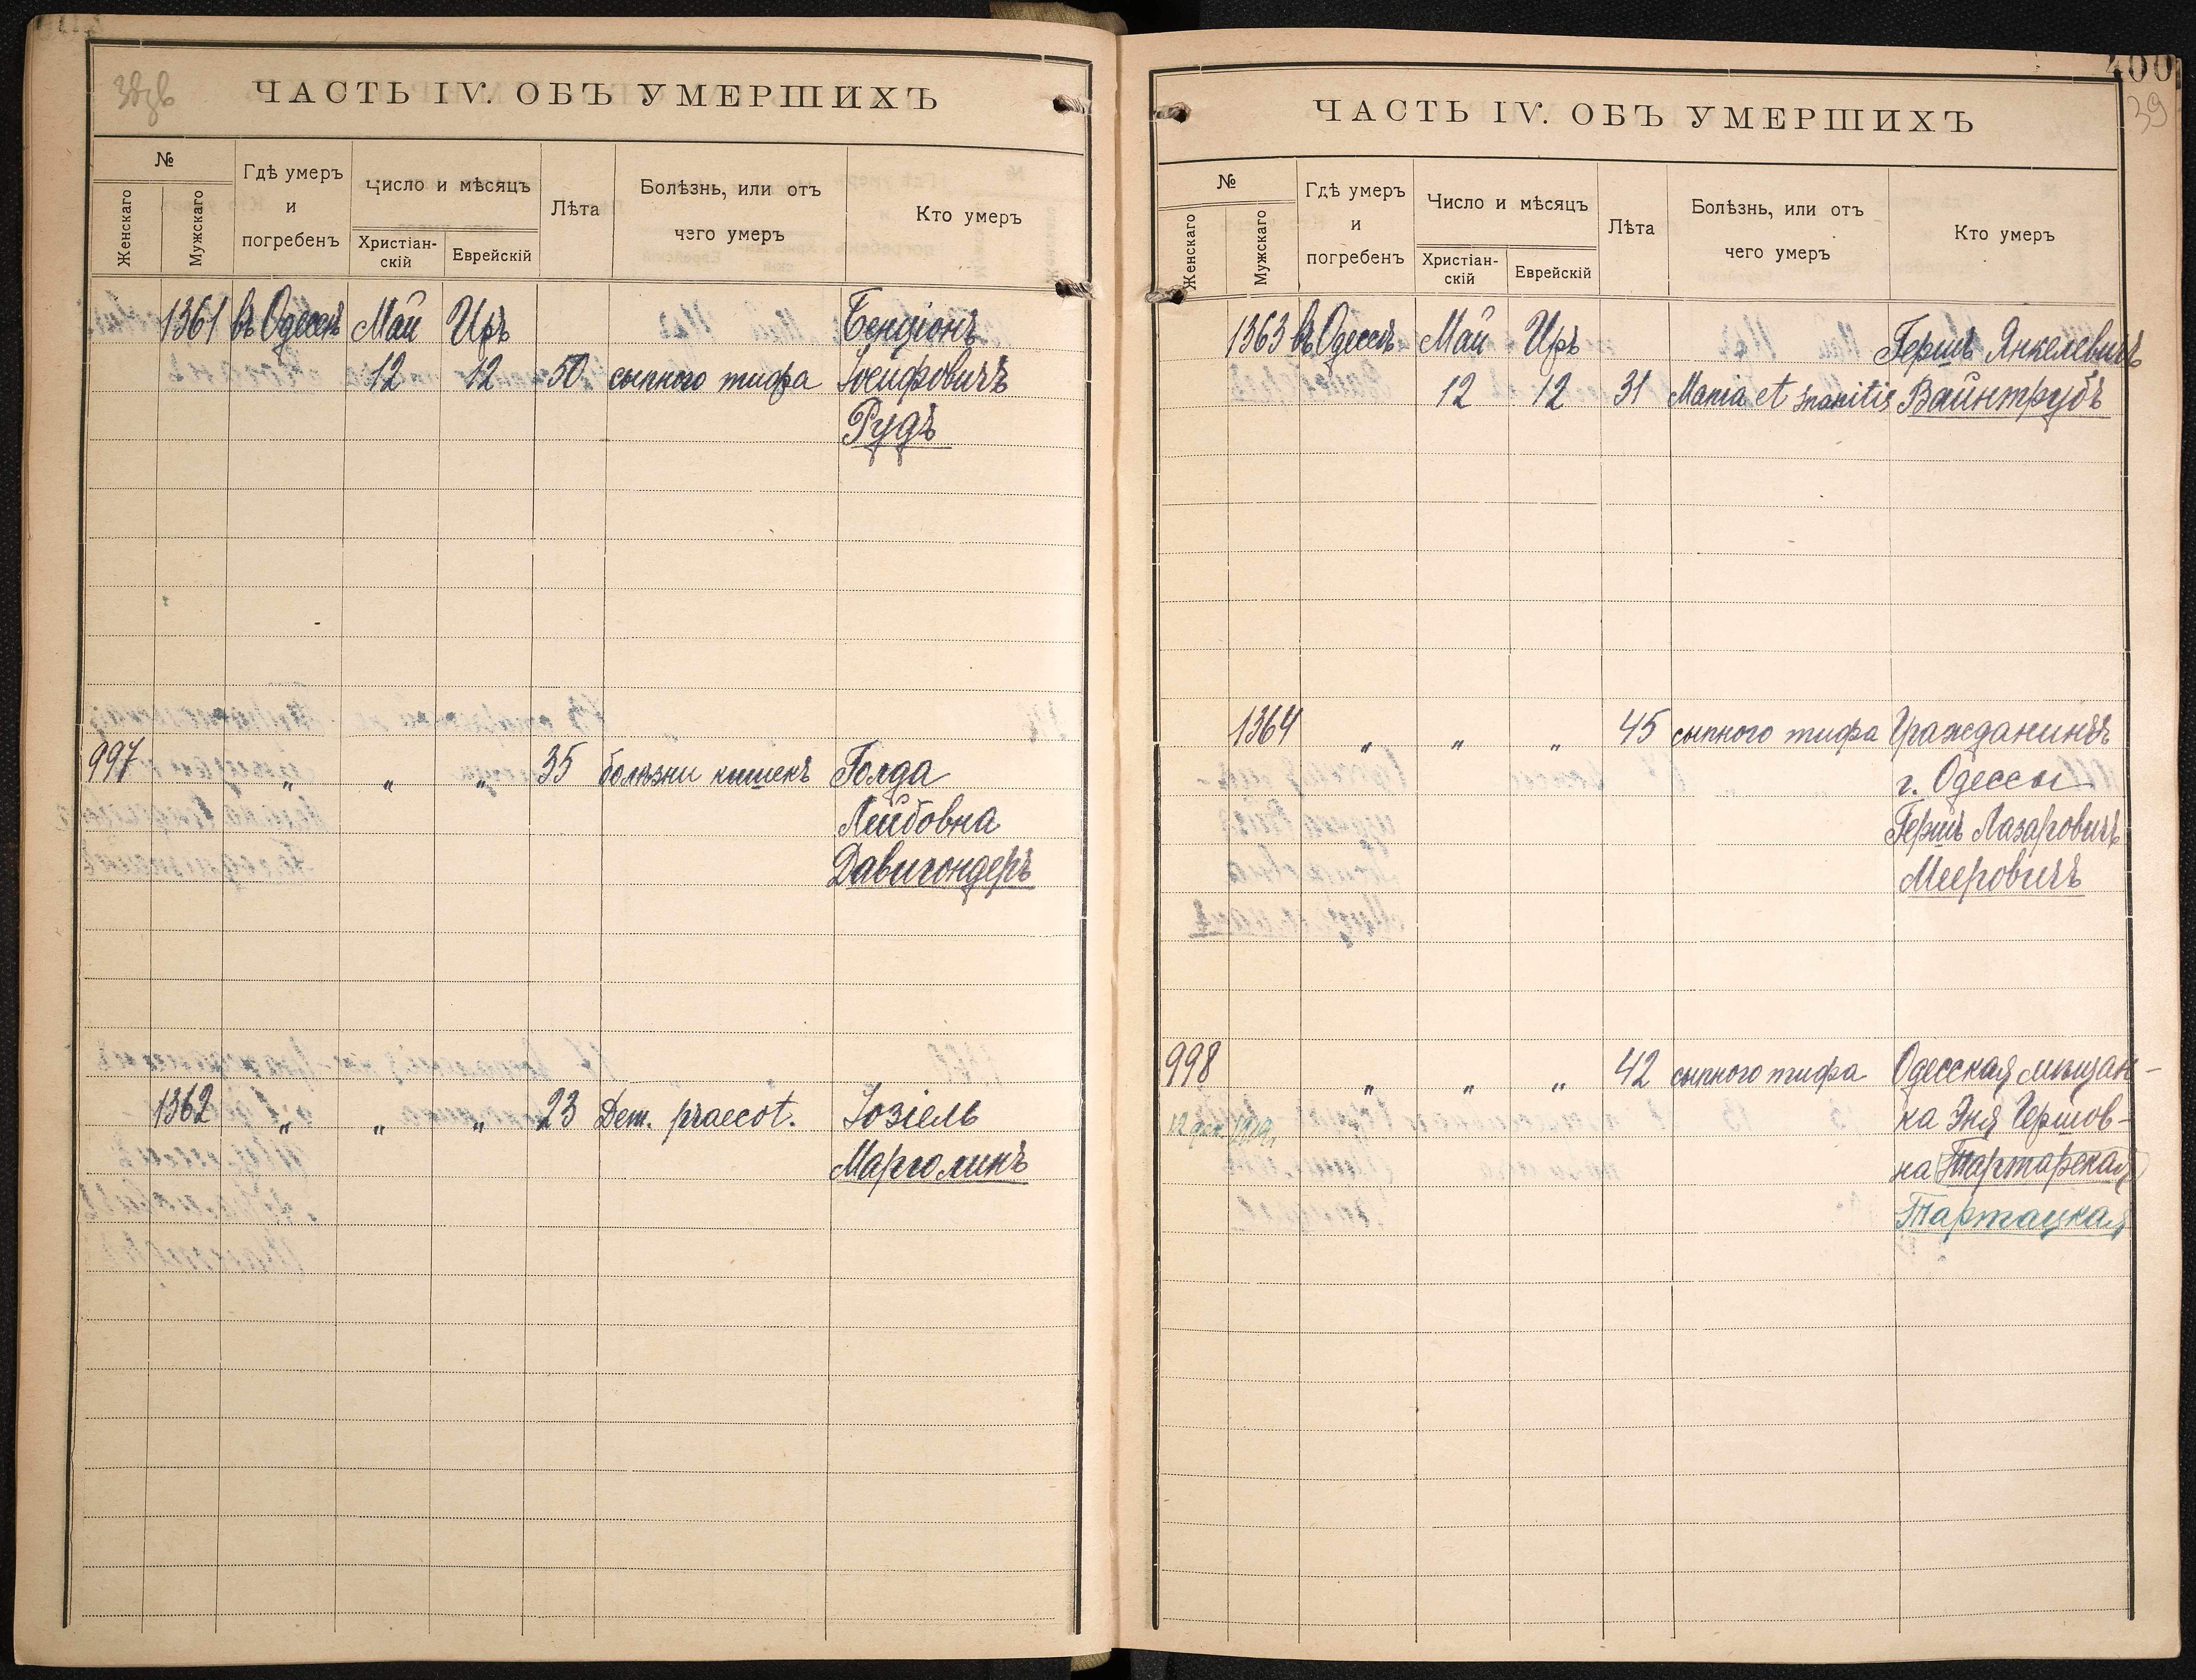 ЧАСТЬ IV. ОБЪ УМЕРШИХЪ
№
Женскаго
Мужскаго
Гдѣ умеръ
и
погребенъ
Число и мѣсяцъ
Христіан-
скій
Еврейскій
Лѣта
Болѣзнь, или отъ
чего умеръ
Кто умеръ
1361 въ Одессѣ Май Иръ Бенціонъ
12 12 50 сыпного тифа Іосифовичъ
Рудъ
997 „ „ „ 35 болѣзни кишекъ Голда
Лейбовна
Давигондеръ
1362 „ „ „ 23 Dem. praecot. Іозіель
Марголинъ
400
39
ЧАСТЬ IV. ОБЪ УМЕРШИХЪ
№
Женскаго
Мужскаго
Гдѣ умеръ
и
погребенъ
Число и мѣсяцъ
Христіан-
скій
Еврейскій
Лѣта
Болѣзнь, или отъ
чего умеръ
Кто умеръ
1363 въ Одессѣ Май Иръ Гершъ Янкелевичъ
12 12 31 Mania et Inanitis Вайнтрубъ
1364 „ „ „ 45 сыпного тифа Гражданинъ
г. Одессы
Гершъ Лазаровичъ
Мееровичъ
998 „ „ „ 42 сыпного тифа Одесская мѣщан-
12 дек. 1919. ка Эня Гершов-
на Тартарская
Тартацкая